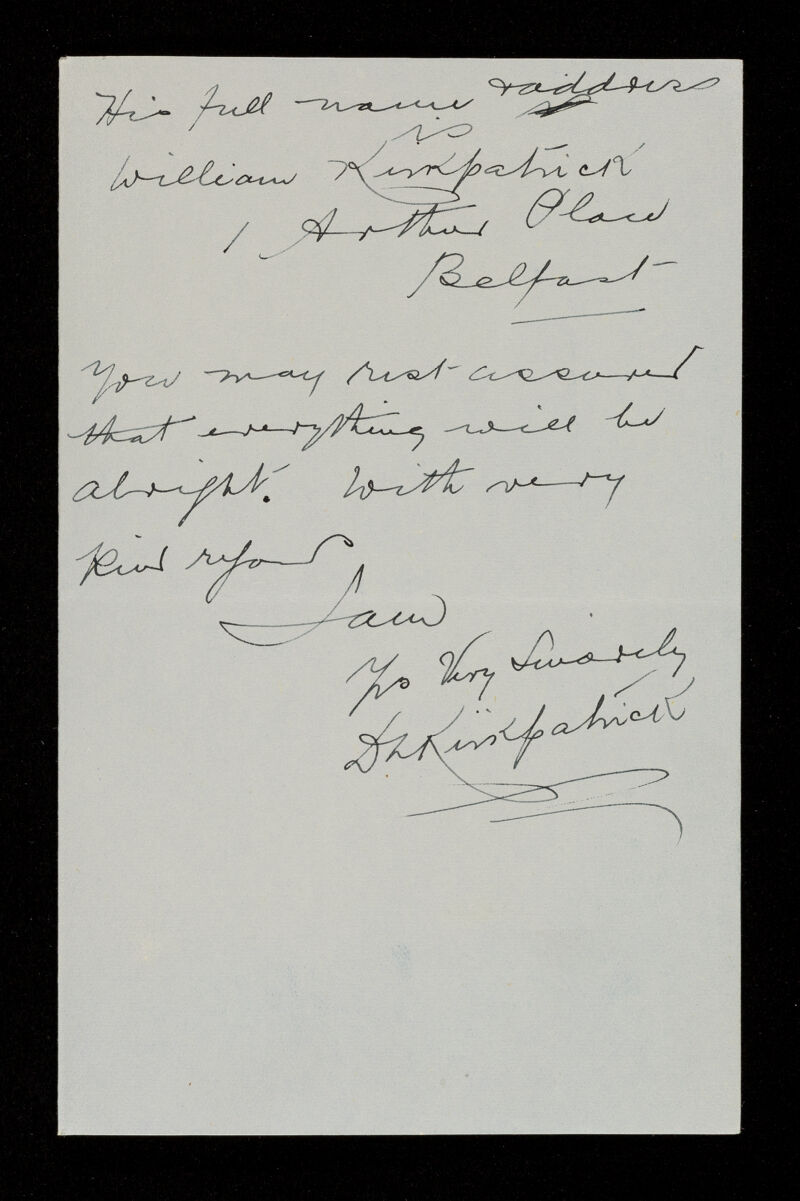 His full name & address
is
William Kirkpatrick
1 Arthur Place
Belfast
You may rest assured
that everything will be
alright. With very
kind regards
I am
Yrs Very Sincerely
D L Kirkpatrick